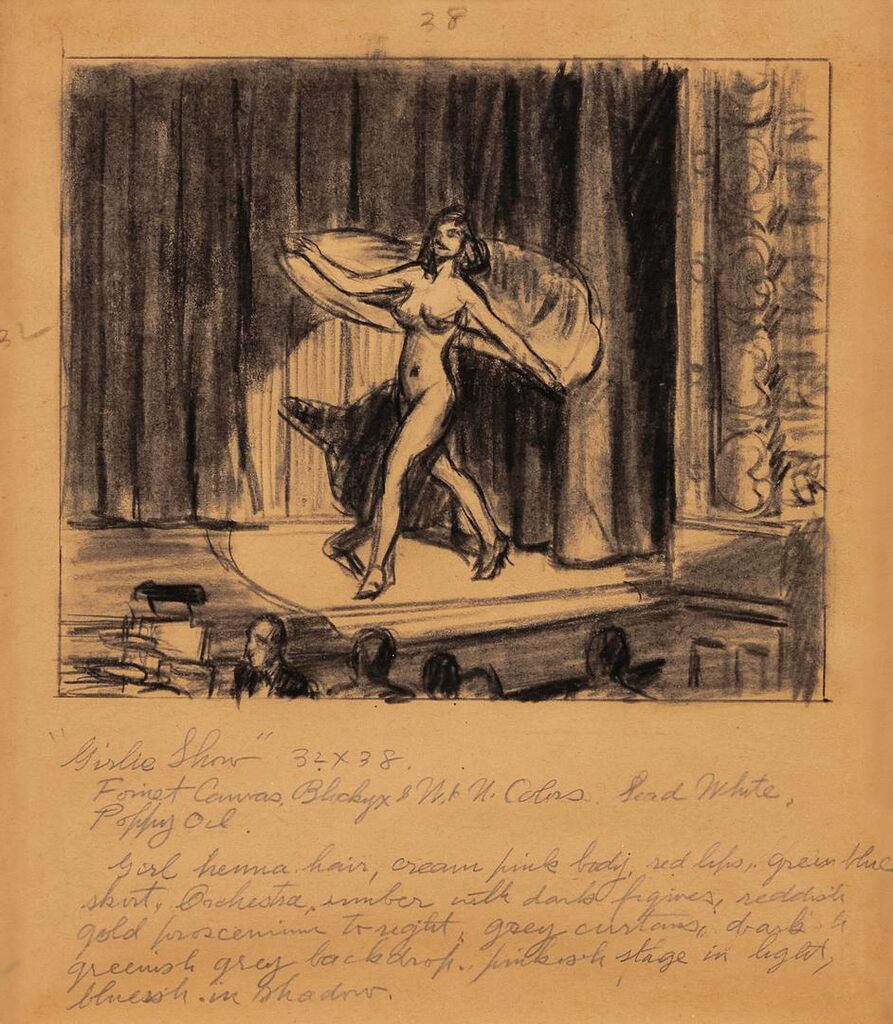 28
32
"Girlie Show" 32 X 38.
Foinet Canvas, Blockyx & W. & N. Colors. Lead White,
Poppy Oil.
Girl henna hair, cream pink body, red lips, green blue
skirt, Orchestra, umber with dark figures, reddish
gold proscenium to right, grey curtains, dark
greenish grey backdrop. pinkish stage in light,
blueish in shadow.